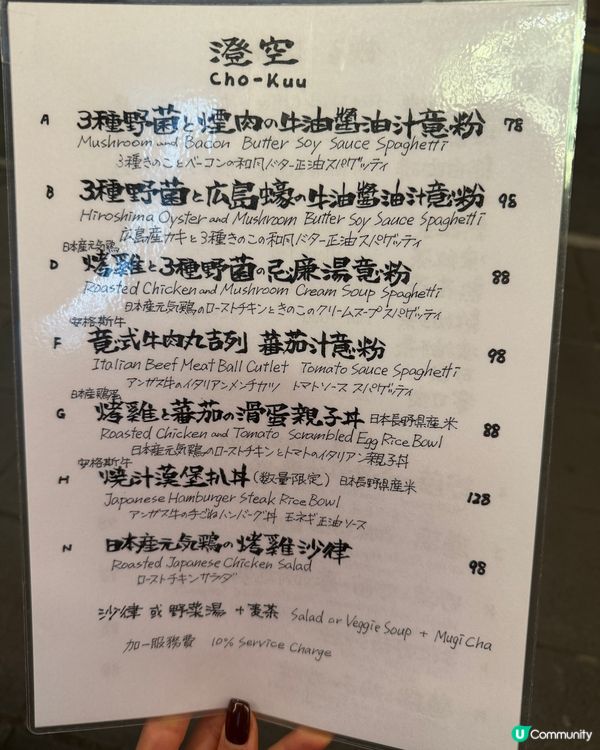 澄空
Cho-Kuu
A 3種野菌と煙肉の牛油醬油汁意粉 78
Mushroom and Bacon Butter Soy Sauce Spaghetti
3種きのことベーコンの和風バター正油スパゲッティ
B 3種野菌と広島蠔の牛油醬油汁意粉 98
Hiroshima Oyster and Mushroom Butter Soy Sauce Spaghetti
広島産カキと3種きのこの和風バター正油スパゲッティ
日本産元気鶏
D 烤雞と3種野菌の忌廉湯意粉 88
Roasted Chicken and Mushroom Cream Soup Spaghetti
日本産元気鶏のローストチキンときのこのクリームスープスパゲッティ
安格斯牛
F 意式牛肉丸吉列 蕃茄汁意粉 98
Italian Beef Meat Ball Cutlet Tomato Sauce Spaghetti
アンガス牛のイタリアンメンチカツ トマトソース スパゲッティ
日本産鶏
G 烤雞と蕃茄の滑蛋親子丼 日本長野県産米 88
Roasted Chicken and Tomato Scrambled Egg Rice Bowl
日本産元気鶏のローストチキンとトマトのイタリアン親子丼
安格斯牛
H 燒汁漢堡扒丼 (数量限定) 日本長野県産米 128
Japanese Hamburger Steak Rice Bowl
アンガス牛の手ごねハンバーグ丼 玉ネギ正油ソース
N 日本産元気鶏の烤雞沙律 98
Roasted Japanese Chicken Salad
ローストチキンサラダ
沙律 或 野菜湯 + 麦茶 Salad or Veggie Soup + Mugi Cha
加一服務費 10% Service Charge
U Community